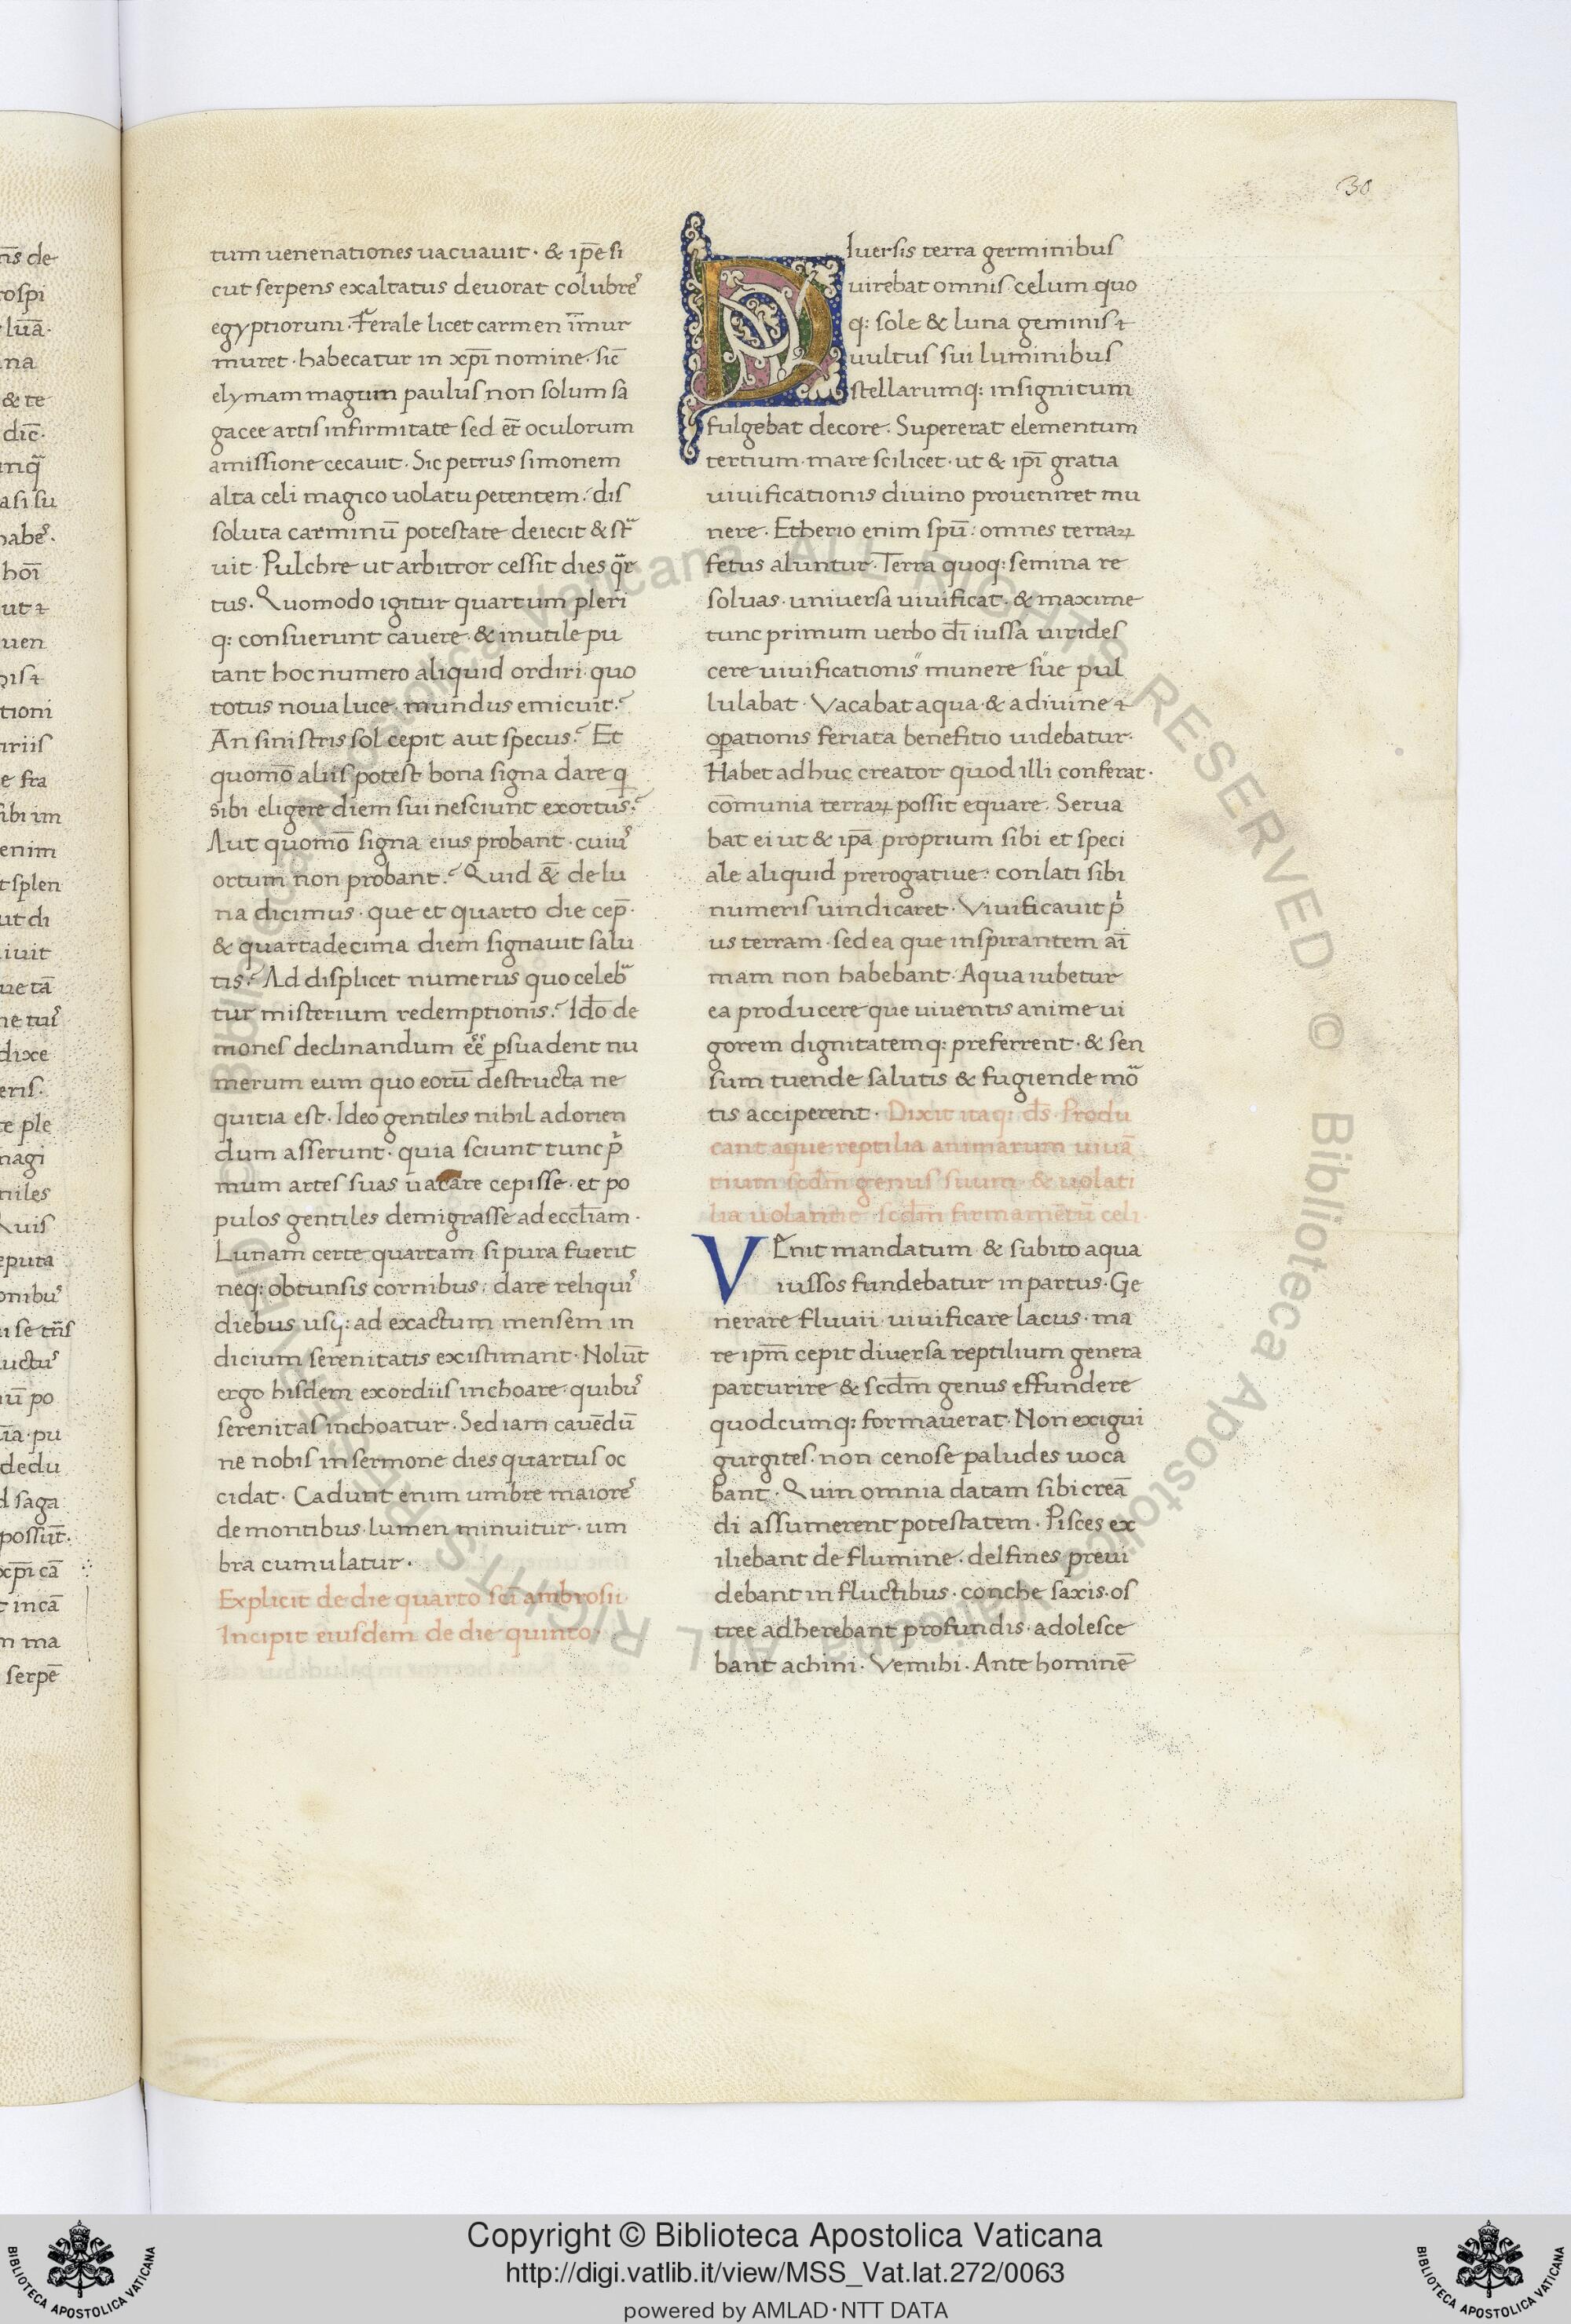 30
tum uenenationes uacuauit· & ip̄e si
cut serpens exaltatus deuorat colubreˢ
egyptiorum· Ferale licet carmen
muret· habecatur in xp̄i nomine· sic̄
elymam magum paulus non solum sa
gacee artis infirmitate sed et̄ oculorum
amissione cecauit· Sic petrus simonem
alta celi magico uolatu petentem· dis
soluta carminū potestate deiecit &
uit· Pulchre ut arbitror cessit dies
tus· Quomodo igitur quartum pleri
q: consuerunt cauere· & inutile pu
tant hoc numero aliquid ordiri· quo
totus noua luce· mundus emicuit?
An sinistris sol cepit aut specus? Et
quomō aliis potest bona signa dare q
sibi eligere diem sui nesciunt exortus?
Aut quomō signa eius probant· cuiuˢ
ortum non probant? Quid & de lu
na dicimus· que et quarto die cep̄·
& quartadecima diem signauit salu
tis? Ad displicet numerus quo celeb
tur misterium redemptionis? Id̄o de
mones declinandum ēē ꝑsuadent nu
merum eum quo eorū destructa ne
quitia est· Ideo gentiles nihil adorien
dum asserunt· quia sciunt tunc pⁱ
mum artes suas uacare cepisse· et po
pulos gentiles demigrasse ad eccl̄iam·
Lunam certe quartam si pura fuerit
neq: obtunsis cornibus· dare reliquiˢ
diebus usq: ad exactum mensem in
dicium serenitatis existimant· Nolūt
ergo hisdem exordiis inchoare quibuˢ
serenitas inchoatur· Sed iam cauēdū
ne nobis in sermone dies quartus oc
cidat· Cadunt enim umbre maioreˢ
de montibus· lumen minuitur· um
bra cumulatur·
Explicit de die quarto sc̄i ambrosii·
Incipit eiusdem de die quinto·
DIuersis terra germinibus
uirebat omnis· celum quo
q: sole & luna geminisꝫ
uultus sui luminibus
stellarumq: insignitum
fulgebat decore· Supererat elementum
tertium· mare scilicet· ut & ip̄i gratia
uiuificationis diuino proueniret mu
nere· Etherio enim sp̄u: omnes terraꝝ
fetus aluntur· Terra quoq: semina re
soluas· uniuersa uiuificat· & maxime
tunc primum uerbo d̄i iussa uirides
cere uiuificationis munere sue pul
lulabat· Vacabat aqua· & a diuineꝫ
oꝑationis feriata benefitio uidebatur·
Habet adhuc creator quod illi conferat·
cōmunia terraꝝ possit equare· Serua
bat ei ut & ip̄a proprium sibi et speci
ale aliquid prerogatiue· conlati sibi
numeris uindicaret· Viuificauit pⁱ
us terram· sed ea que inspirantem aī
mam non habebant· Aqua iubetur
ea producere que uiuentis anime ui
gorem dignitatemq: preferrent· & sen
sum tuende salutis & fugiende mo
tis acciperent· Dixit itaq: d̄s· Produ
cant aque reptilia animarum uiuā
tium scd̄m genus suum· & uolati
lia uolantie scd̄m firmamētū celi·
VEnit mandatum· & subito aqua
iussos fundebatur in partus· Ge
nerare fluuii uiuificare lacus· ma
re ipm̄ cepit diuersa reptilium genera
parturire & scd̄m genus effundere
quodcumq: formauerat· Non exigui
gurgites· non cenose paludes uoca
bant· Quin omnia datam sibi creā
di assumerent potestatem· Pisces ex
iliebant de flumine· delfines preui
debant in fluctibus· conche saxis· os
tree adherebant profundis· adolesce
bant achini· Vemihi· Ante hominē
© Biblioteca Apostolica Vaticana ALL RIGHTS RESERVED
© Biblioteca Apostolica Vaticana ALL RIGHTS RESERVED
Copyright © Biblioteca Apostolica Vaticana
http://digi.vatlib.it/view/MSS_Vat.lat.272/0063
powered by AMLAD·NTT DATA
BIBLIOTECA APOSTOLICA VATICANA
BIBLIOTECA APOSTOLICA VATICANA